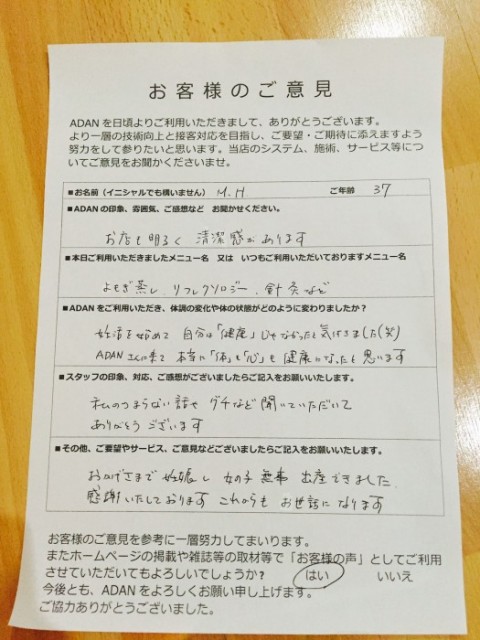 お客様のご意見
ADANを日頃よりご利用いただきまして、ありがとうございます。
より一層の技術向上と接客対応を目指し、ご要望・ご期待に添えますよう
努力をして参りたいと思います。当店のシステム、施術、サービス等に
ついてご意見をお聞かせくださいませ。
■お名前（イニシャルでも構いません） M.H ご年齢 37
■ADANの印象、雰囲気、ご感想など お聞かせください。
お店も明るく 清潔感があります
■本日ご利用いただきましたメニュー名 又は いつもご利用いただいておりますメニュー名
よもぎ蒸し、リフレクソロジー、針灸など
■ADANをご利用いただき、体調の変化や体の状態がどのように変わりましたか？
妊活を始めて 自分は「健康」じゃなかったと気付きました(笑)
ADANさんに来て 本当に「体」も「心」も健康になったと思います
■スタッフの印象、対応、ご感想がございましたらご記入をお願いいたします。
私のつまらない話や グチなど聞いていただいて
ありがとうございます
■その他、ご要望やサービス、ご意見などございましたらご記入をお願いいたします。
おかげさまで 妊娠し 女の子 無事 出産できました
感謝いたしております これからも お世話になります
お客様のご意見を参考に一層努力してまいります。
またホームページの掲載や雑誌等の取材等で「お客様の声」としてご利用
させていただいてもよろしいでしょうか？ はい いいえ
今後とも、ADANをよろしくお願い申し上げます。
ご協力ありがとうございました。